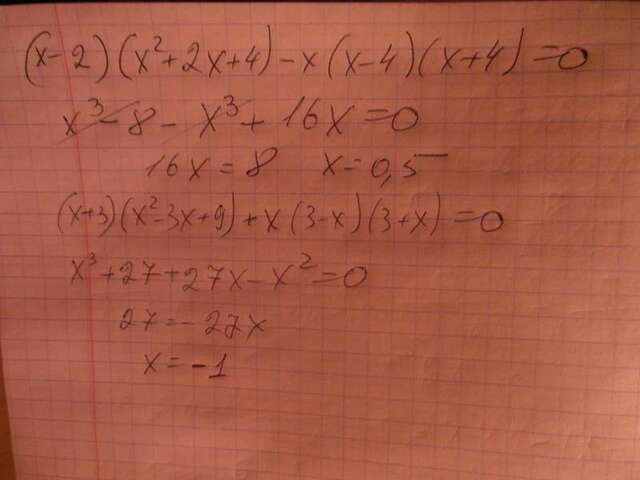 (x-2)(x²+2x+4)-x(x-4)(x+4)=0
x³-8-x³+16x=0
16x=8 x=0,5
(x+3)(x²-3x+9)+x(3-x)(3+x)=0
x³+27+27x-x²=0
27=-27x
x=-1